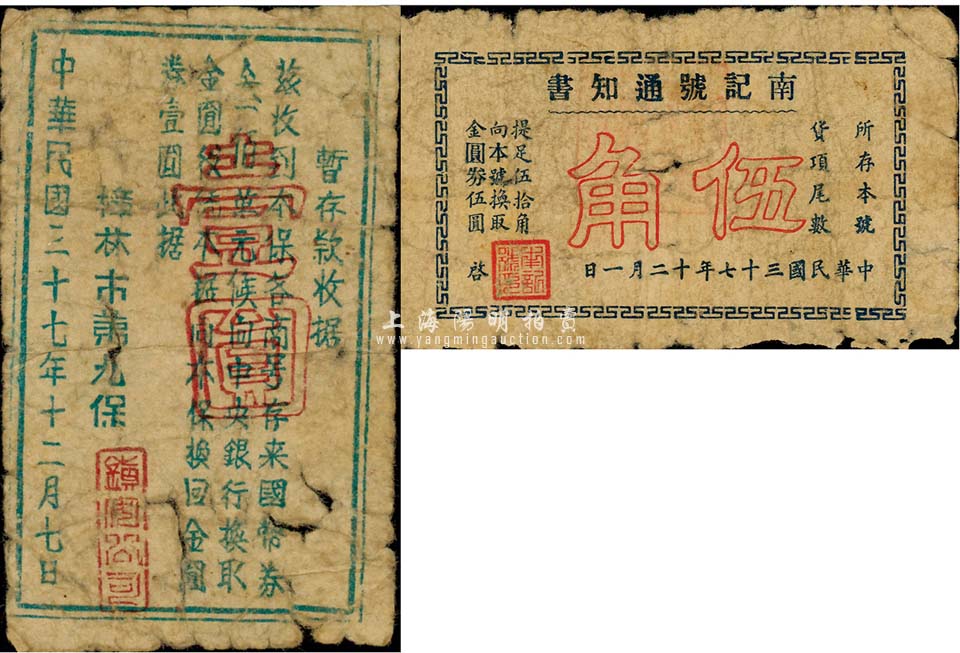 暫存款收据
茲收到本保各商号存来國幣券
萬元候向中央銀行換取
金圓後保換回金圓
券壹圓此据
林市第九保
中華民國三十七年十二月七日
壹圓
南記號通知書
所存本號
貨項尾數
伍角
提足伍拾角
向本號換取
金圓券伍圓
啓
中華民國三十七年十二月一日
上海陽明拍賣
www.yangmingauction.com